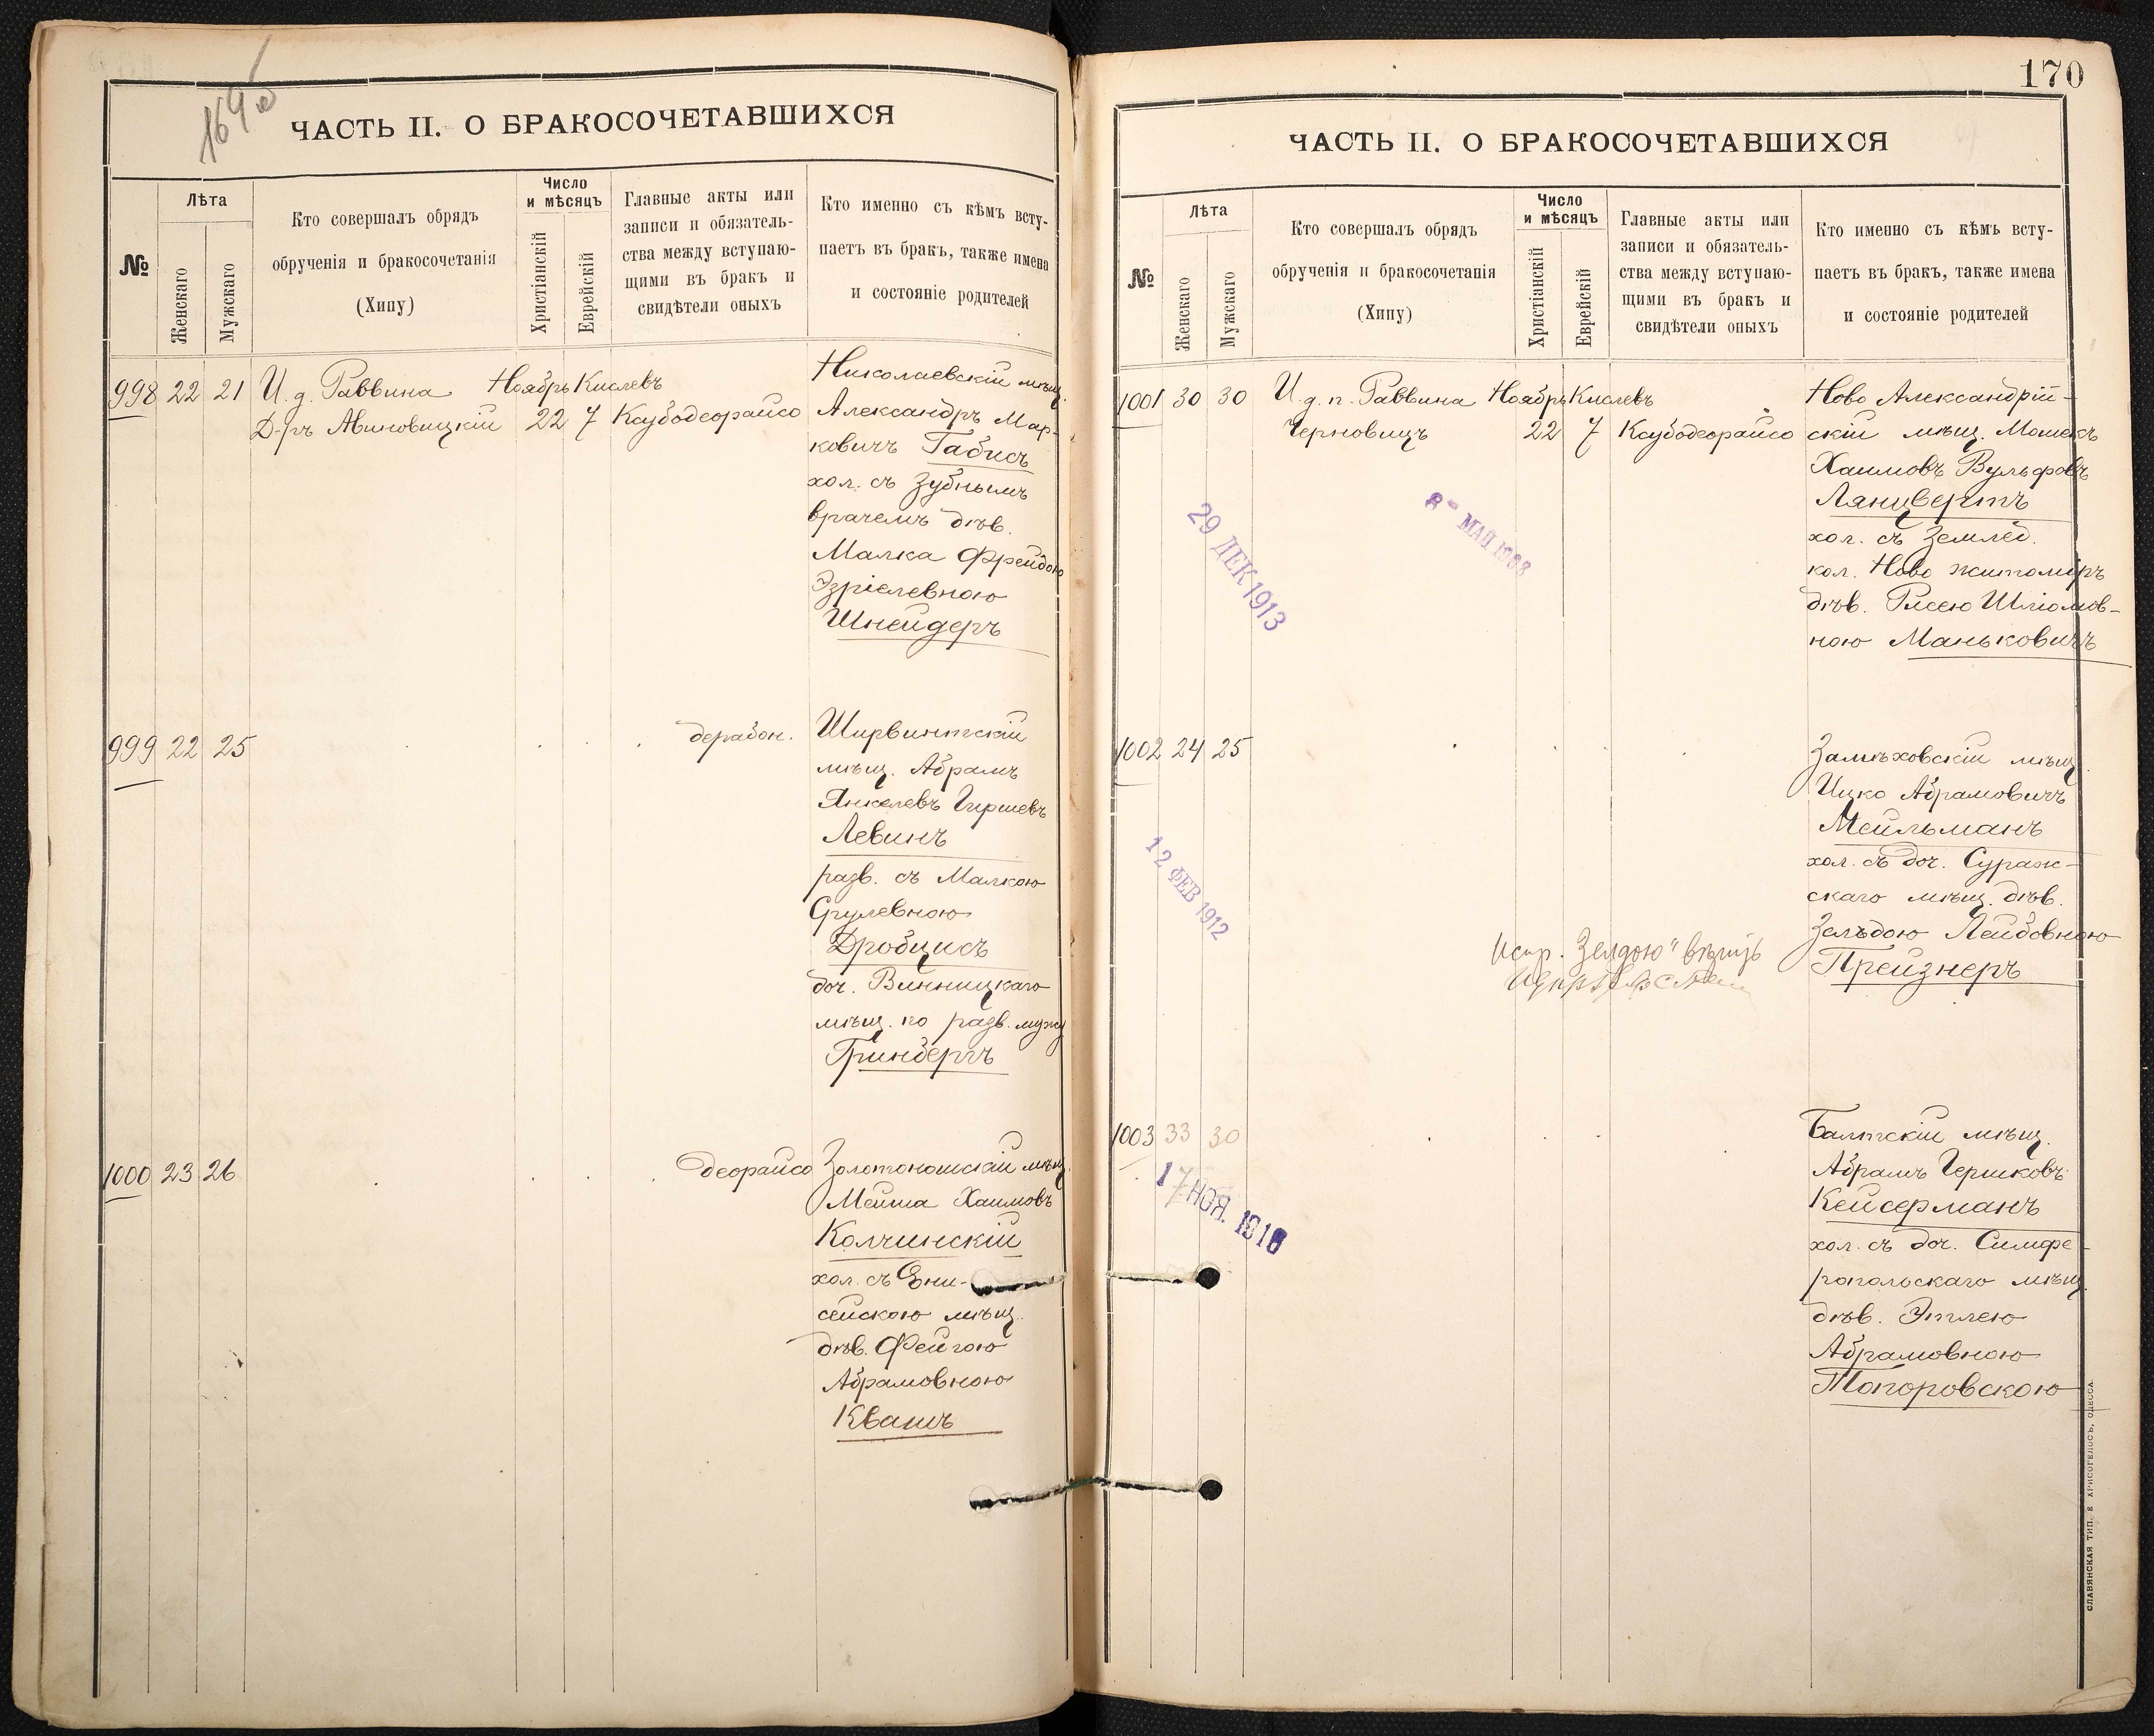 169 об
ЧАСТЬ II. О БРАКОСОЧЕТАВШИХСЯ
№
Лѣта
Женскаго
Мужскаго
Кто совершалъ обрядъ
обрученія и бракосочетанія
(Хипу)
Число
и мѣсяцъ
Христіанскій
Еврейскій
Главные акты или
записи и обязатель-
ства между вступаю-
щими въ бракъ и
свидѣтели оныхъ
Кто именно съ кѣмъ всту-
паетъ въ бракъ, также имена
и состояніе родителей
998 22 21 И. д. Раввина Ноябрь Кислевъ
Д-ръ Авиновицкій 22 7 Ксубодеорайсо
Николаевскій мѣщ.
Александръ Мар-
ковичъ Габисъ
хол. съ Зубнымъ
врачемъ дѣв.
Малка Фрейдою
Эзріелевною
Шнейдеръ
999 22 25 дерабон.
Ширвинтскій
мѣщ. Абрамъ
Янкелевъ Гиршевъ
Левинъ
разв. съ Малкою
Срулевною
Дробцисъ
доч. Винницкаго
мѣщ. по разв. мужу
Гринбергъ
1000 23 26 деорайсо
Золотоношскій мѣщ.
Мейша Хаимовъ
Колчинскій
хол. съ Ени-
сейскою мѣщ.
дѣв. Фейгою
Абрамовною
Квашъ
170
ЧАСТЬ II. О БРАКОСОЧЕТАВШИХСЯ
№
Лѣта
Женскаго
Мужскаго
Кто совершалъ обрядъ
обрученія и бракосочетанія
(Хипу)
Число
и мѣсяцъ
Христіанскій
Еврейскій
Главные акты или
записи и обязатель-
ства между вступаю-
щими въ бракъ и
свидѣтели оныхъ
Кто именно съ кѣмъ всту-
паетъ въ бракъ, также имена
и состояніе родителей
1001 30 30 И. д. п. Раввина Ноябрь Кислевъ
Черновицъ 22 7 Ксубодеорайсо
Ново Александрій-
скій мѣщ. Мошекъ
Хаимовъ Вульфовъ
Лянцвертъ
хол. съ Землед.
кол. Ново Житомиръ
дѣв. Рисею Шліомов-
ною Маньковичъ
29 ДЕК 1913
8 МАЙ 1908
1002 24 25
Замѣховскій мѣщ.
Ицко Абрамовичъ
Мейльманъ
хол. съ доч. Сураж-
скаго мѣщ. дѣв.
Зельдою Лейбовною
Прейзнеръ
12 ФЕВ 1912
Испр. Зелдою"
1003 33 30
Балтскій мѣщ.
Абрамъ Гершковъ
Кейсерманъ
хол. съ доч. Симфе-
ропольскаго мѣщ.
дѣв. Этлею
Абрамовною
Топоровскою
17 НОЯ. 1916
СЛАВЯНСКАЯ ТИП. Е ХРИСОГЕЛОСЪ, ОДЕССА.